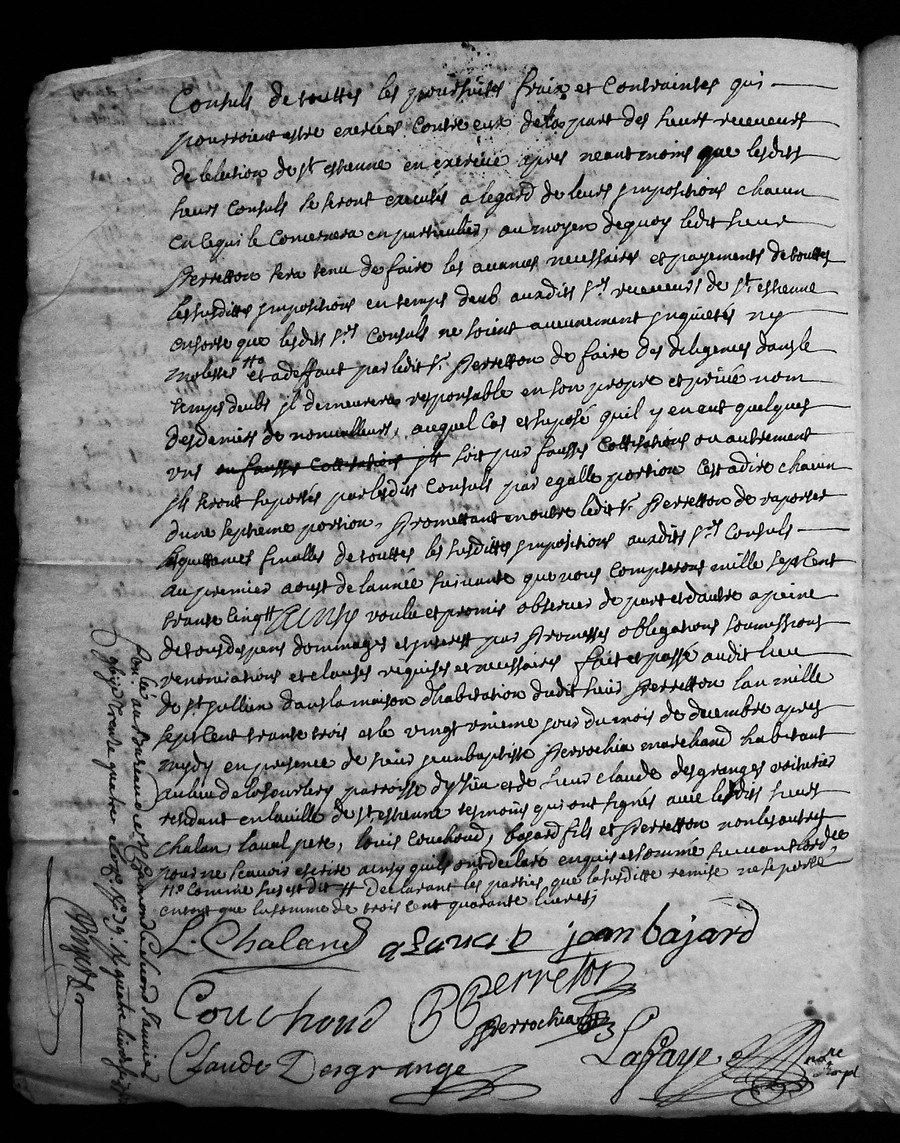 Consuls de touttes les poursuittes fraix et Contraintes qui
pourroient estre exercées Contre eux de la part des sieurs receveurs
de lelection de St estienne en exercice apres neantmoins que lesdits
sieurs Consuls se seront executés a legard de leurs jmpositions chacun
en ce qui le Concernera en particulier, au moyen dequoy ledit sieur
Perretton sera tenu de faire les avances necessaires et payements de touttes
les susdittes jmpositions en temps deub auxdits srs receveurs de St estienne
ensorte que lesdits srs Consuls ne soient aucunement jnquietés ny
molestés et a deffaut par ledit sr Perretton de faire des diligences dans le
temps deubs jl demeurera responsable en son propre et privé nom
des deniers de nonvalleurs, auquel Cas et suposé quil y en eut quelques
unes ou fausses Cottisations jls soit par fausses Cottisations ou autrement
jls seront suportés par lesdits Consuls par egalle portion Cest a dire chacun
dune septieme portion, Promettant en outre ledit sr Perretton de raporter
quittances finalles de touttes les susdittes jmpositions auxdits srs Consuls
au premier aoust de lannée suivante que nous Compterons mille sept Cent
trante Cinq Ainsy voulu et promis observer de part et dautre a peine
de tous despens dommages et jnterest par Promesses obligations soumissions
renonciations et clauses requises et necessaires fait et passé audit lieu
de St jullien dans la maison dhabitation dudit sieur Perretton lan mille
sept Cent trante trois et le vingt unieme jour du mois de decembre apres
midy en presence de sieur jean baptiste Perrochia marchand habitant
au lieu de parroisse dyzieu et de sieur claude desgranges voiturier
residant en la ville de St estienne tesmoins qui ont signés avec lesdits sieurs
chalan, laval pere, louis Couchoud, bajard fils et Perretton non les autres
pour ne scavoir escrire ainsy quils ont declaré enquis et sommé suivant lordce
Comme sus est dit Declarant les parties que la susditte remise ne se porte
en tout que la somme de trois cent quarante livres
L. Chaland a Laval jean bajard
Couchoud Perreton
Perrochia
Claude Desgrange Lafaye
nore royal
Con.lé au Bureau de St Chamond Le
trente quatre quatre livres